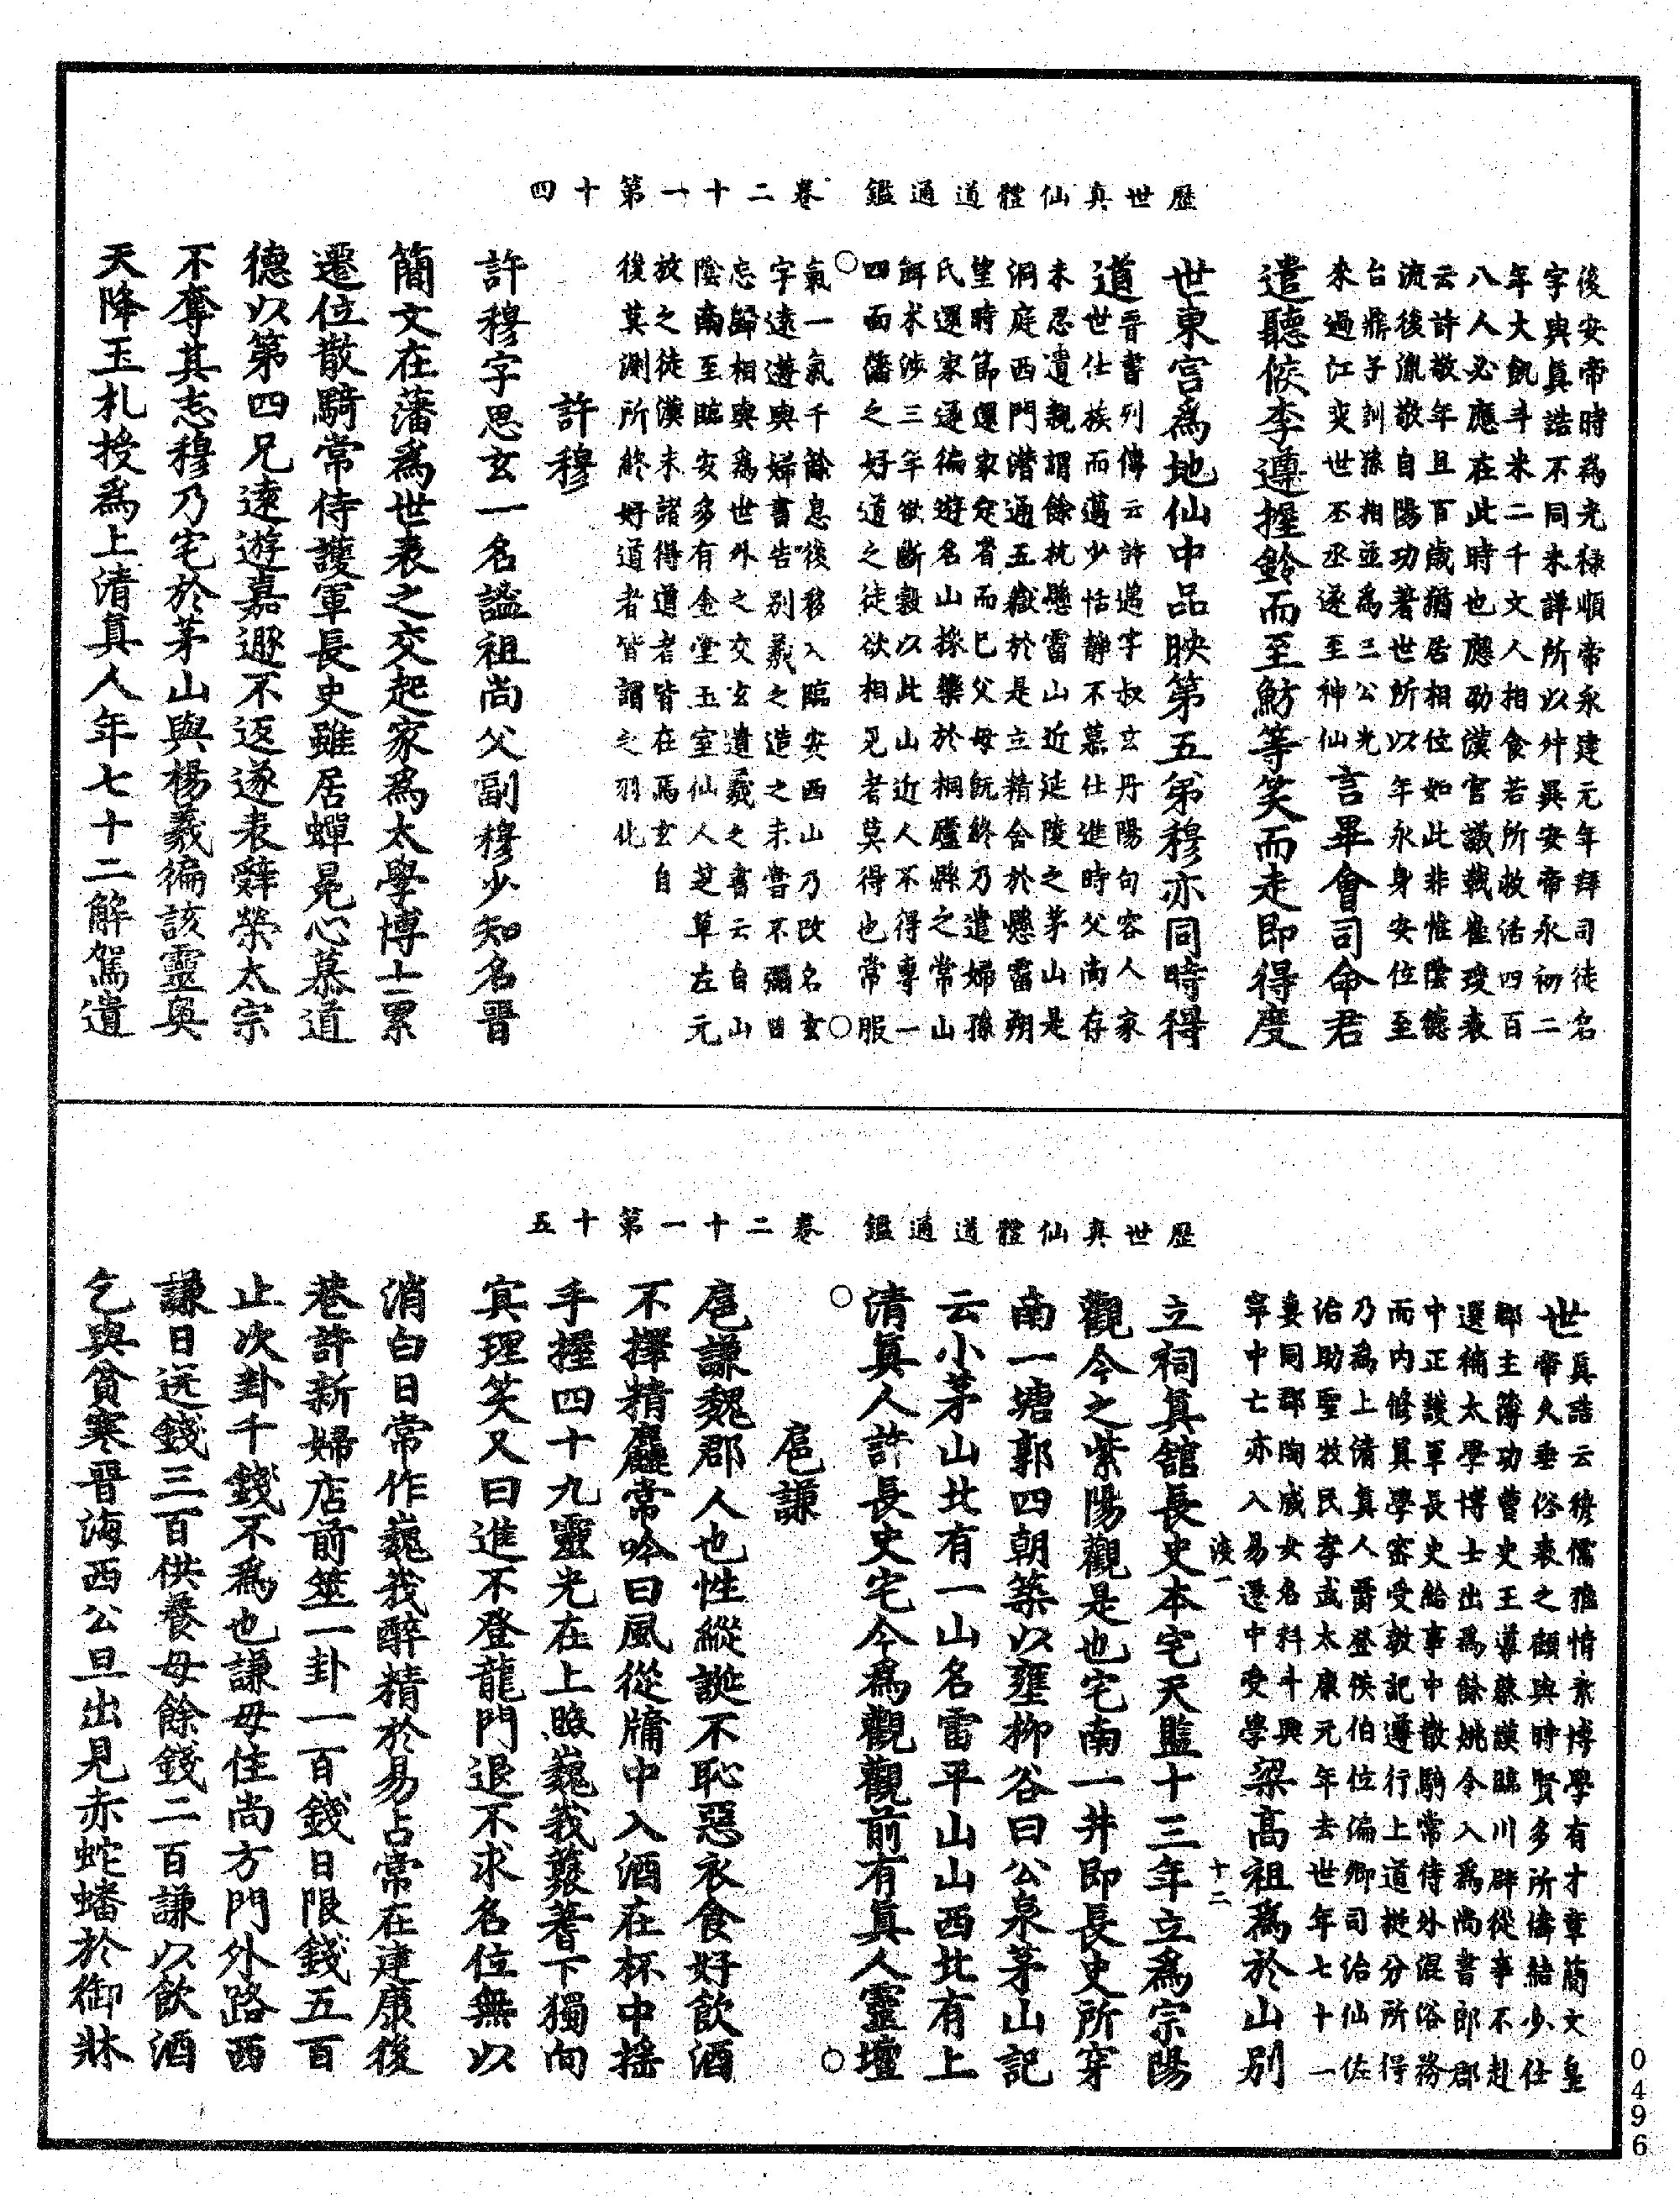 歷世真仙體道通鑑　卷二十一第十四
後安帝時爲光祿順帝永建元年拜司徒名
字與真誥不同未詳所以舛異安帝永初二
年大飢斗米二千文人相食若所救活四百
八人必應在此時也應劭漢官議載崔瑗表
云許敬年且百歲猶居相位如此非惟陰德
流後胤敬自陽功著世所以年永身安位至
台鼎子訓孫相並爲三公光
來過江奕世丕丞遂至神仙言畢會司命君
遣聽候李遵握鈴而至魴等笑而走即得度
世東宮爲地仙中品映第五弟穆亦同時得
道晉書列傳云許邁字叔玄丹陽句容人家
世仕族而邁少恬靜不慕仕進時父尚存
未忍違親謂餘杭懸霤山近延陵之茅山是
洞庭西門潜通五嶽於是立精舍於懸霤朔
望時節還家定省而已父母旣終乃遣婦孫
氏還家遂徧遊名山採藥於桐廬縣之常山
餌朮涉三年欲斷穀以此山近人不得專一
四面藩之好道之徒欲相見者莫得也常服
氣一氣千餘息後移入臨安西山乃改名玄
字遠遊與婦書告別羲之造之未嘗不彌日
忘歸相與爲世外之交玄遺羲之書云自山
陰南至臨安多有金堂玉室仙人芝草左元
放之徒漢末諸得道者皆在焉玄自
後莫測所終好道者皆謂之羽化
許穆
許穆字思玄一名謐祖尚父副穆少知名晉
簡文在藩爲世表之交起家爲太學博士累
遷位散騎常侍護軍長史雖居蟬冕心慕道
德以第四兄遠遊嘉遯不返遂表辭榮太宗
不奪其志穆乃宅於茅山與楊羲徧該靈奧
天降玉札授爲上清真人年七十二解駕遺
歷世真仙體道通鑑　卷二十一第十五
世真誥云穆儒雅情素博學有才章簡文皇
帝久垂俗表之顧與時賢多所儔結少仕
郡主簿功曹史王導蔡謨臨川辟從事不赴
選補太學博士出爲餘姚令入爲尚書郎郡
中正護軍長史給事中散騎常侍外混俗務
而内修真學密受教記遵行上道挺分所得
乃爲上清真人爵登侯伯位偏卿司治仙佐
治助聖牧民孝武太康元年去世年七十一
妻同郡陶威女名科斗興
寧中亡亦入易遷中受學梁高祖爲於山別
渡一　十二
立祠真舘長史本宅天監十三年立爲宗陽
觀今之紫陽觀是也宅南一井即長史所穿
南一塘郭四朝築以壅柳谷曰公泉茅山記
云小茅山北有一山名雷平山山西北有上
清真人許長史宅今爲觀觀前有真人靈壇
扈謙
扈謙魏郡人也性縱誕不恥惡衣食好飲酒
不擇精麤常吟曰風從牗中入酒在杯中搖
手握四十九靈光在上照巍峩蓑蓍下獨向
冥理笑又曰進不登龍門退不求名位無以
消白日常作巍峩醉精於易占常在建康後
巷許新婦店前筮一卦一百錢日限錢五百
止次卦千錢不爲也謙母住尚方門外路西
謙日送錢三百供養母餘錢二百謙以飲酒
乞與貧寒晉海西公旦出見赤蛇蟠於御牀
0496